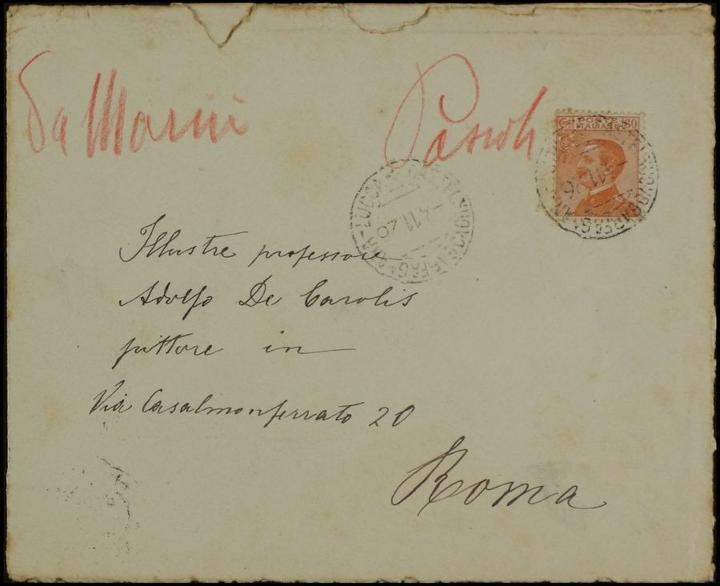 Da Marii Pascoli
Illustre professore
Adolfo De Carolis
pittore in
Via Casalmonferrato 20
Roma